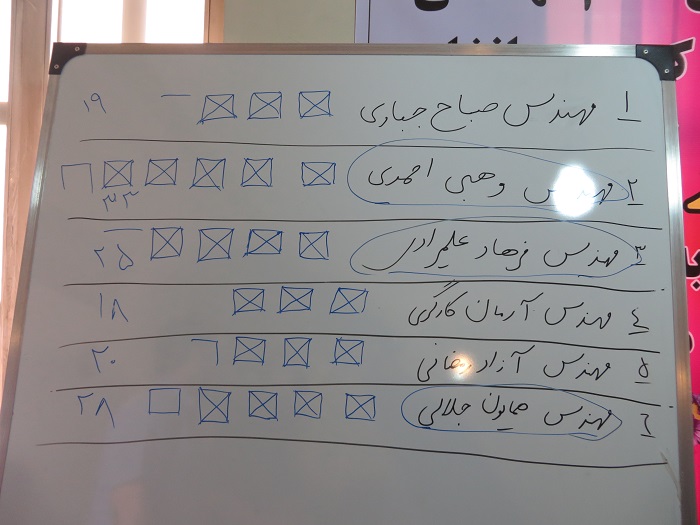 ۱ مهندس صباح جباری ۱۹
۲ مهندس وهبی احمدی ۳۳
۳ مهندس فرهاد علیمرادی ۲۵
٤ مهندس آرمان کارگری ۱۸
۵ مهندس آزاد رضائی ۲۰
٦ مهندس همایون جلالی ۲۸